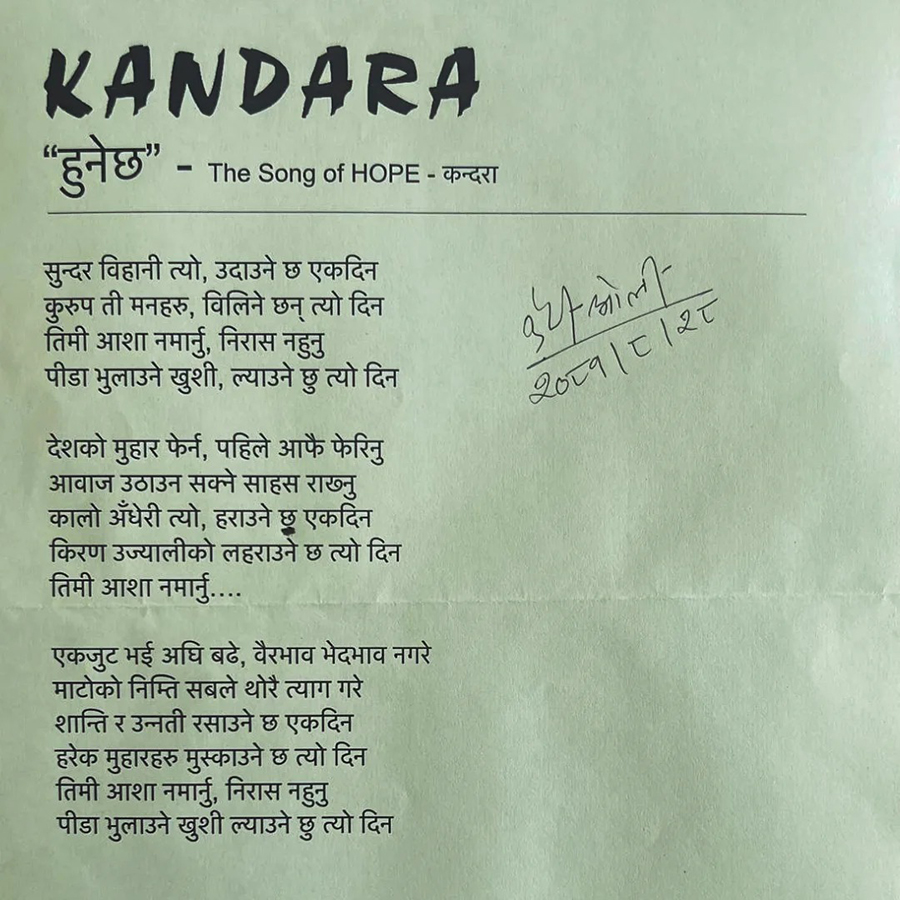 KANDARA
“हुनेछ” - The Song of HOPE - कन्दरा
सुन्दर विहानी त्यो, उदाउने छ एकदिन
कुरुप ती मनहरु, विलिने छन् त्यो दिन
तिमी आशा नमार्नु, निरास नहुनु
पीडा भुलाउने खुशी, ल्याउने छु त्यो दिन
देशको मुहार फेर्न, पहिले आफै फेरिनु
आवाज उठाउन सक्ने साहस राख्नु
कालो अँधेरी त्यो, हराउने छु एकदिन
किरण उज्यालीको लहराउने छ त्यो दिन
तिमी आशा नमार्नु....
एकजुट भई अघि बढे, वैरभाव भेदभाव नगरे
माटोको निम्ति सबले थोरै त्याग गरे
शान्ति र उन्नती रसाउने छ एकदिन
हरेक मुहारहरु मुस्काउने छ त्यो दिन
तिमी आशा नमार्नु, निरास नहुनु
पीडा भुलाउने खुशी ल्याउने छु त्यो दिन
ओली
२०८१।८।२८